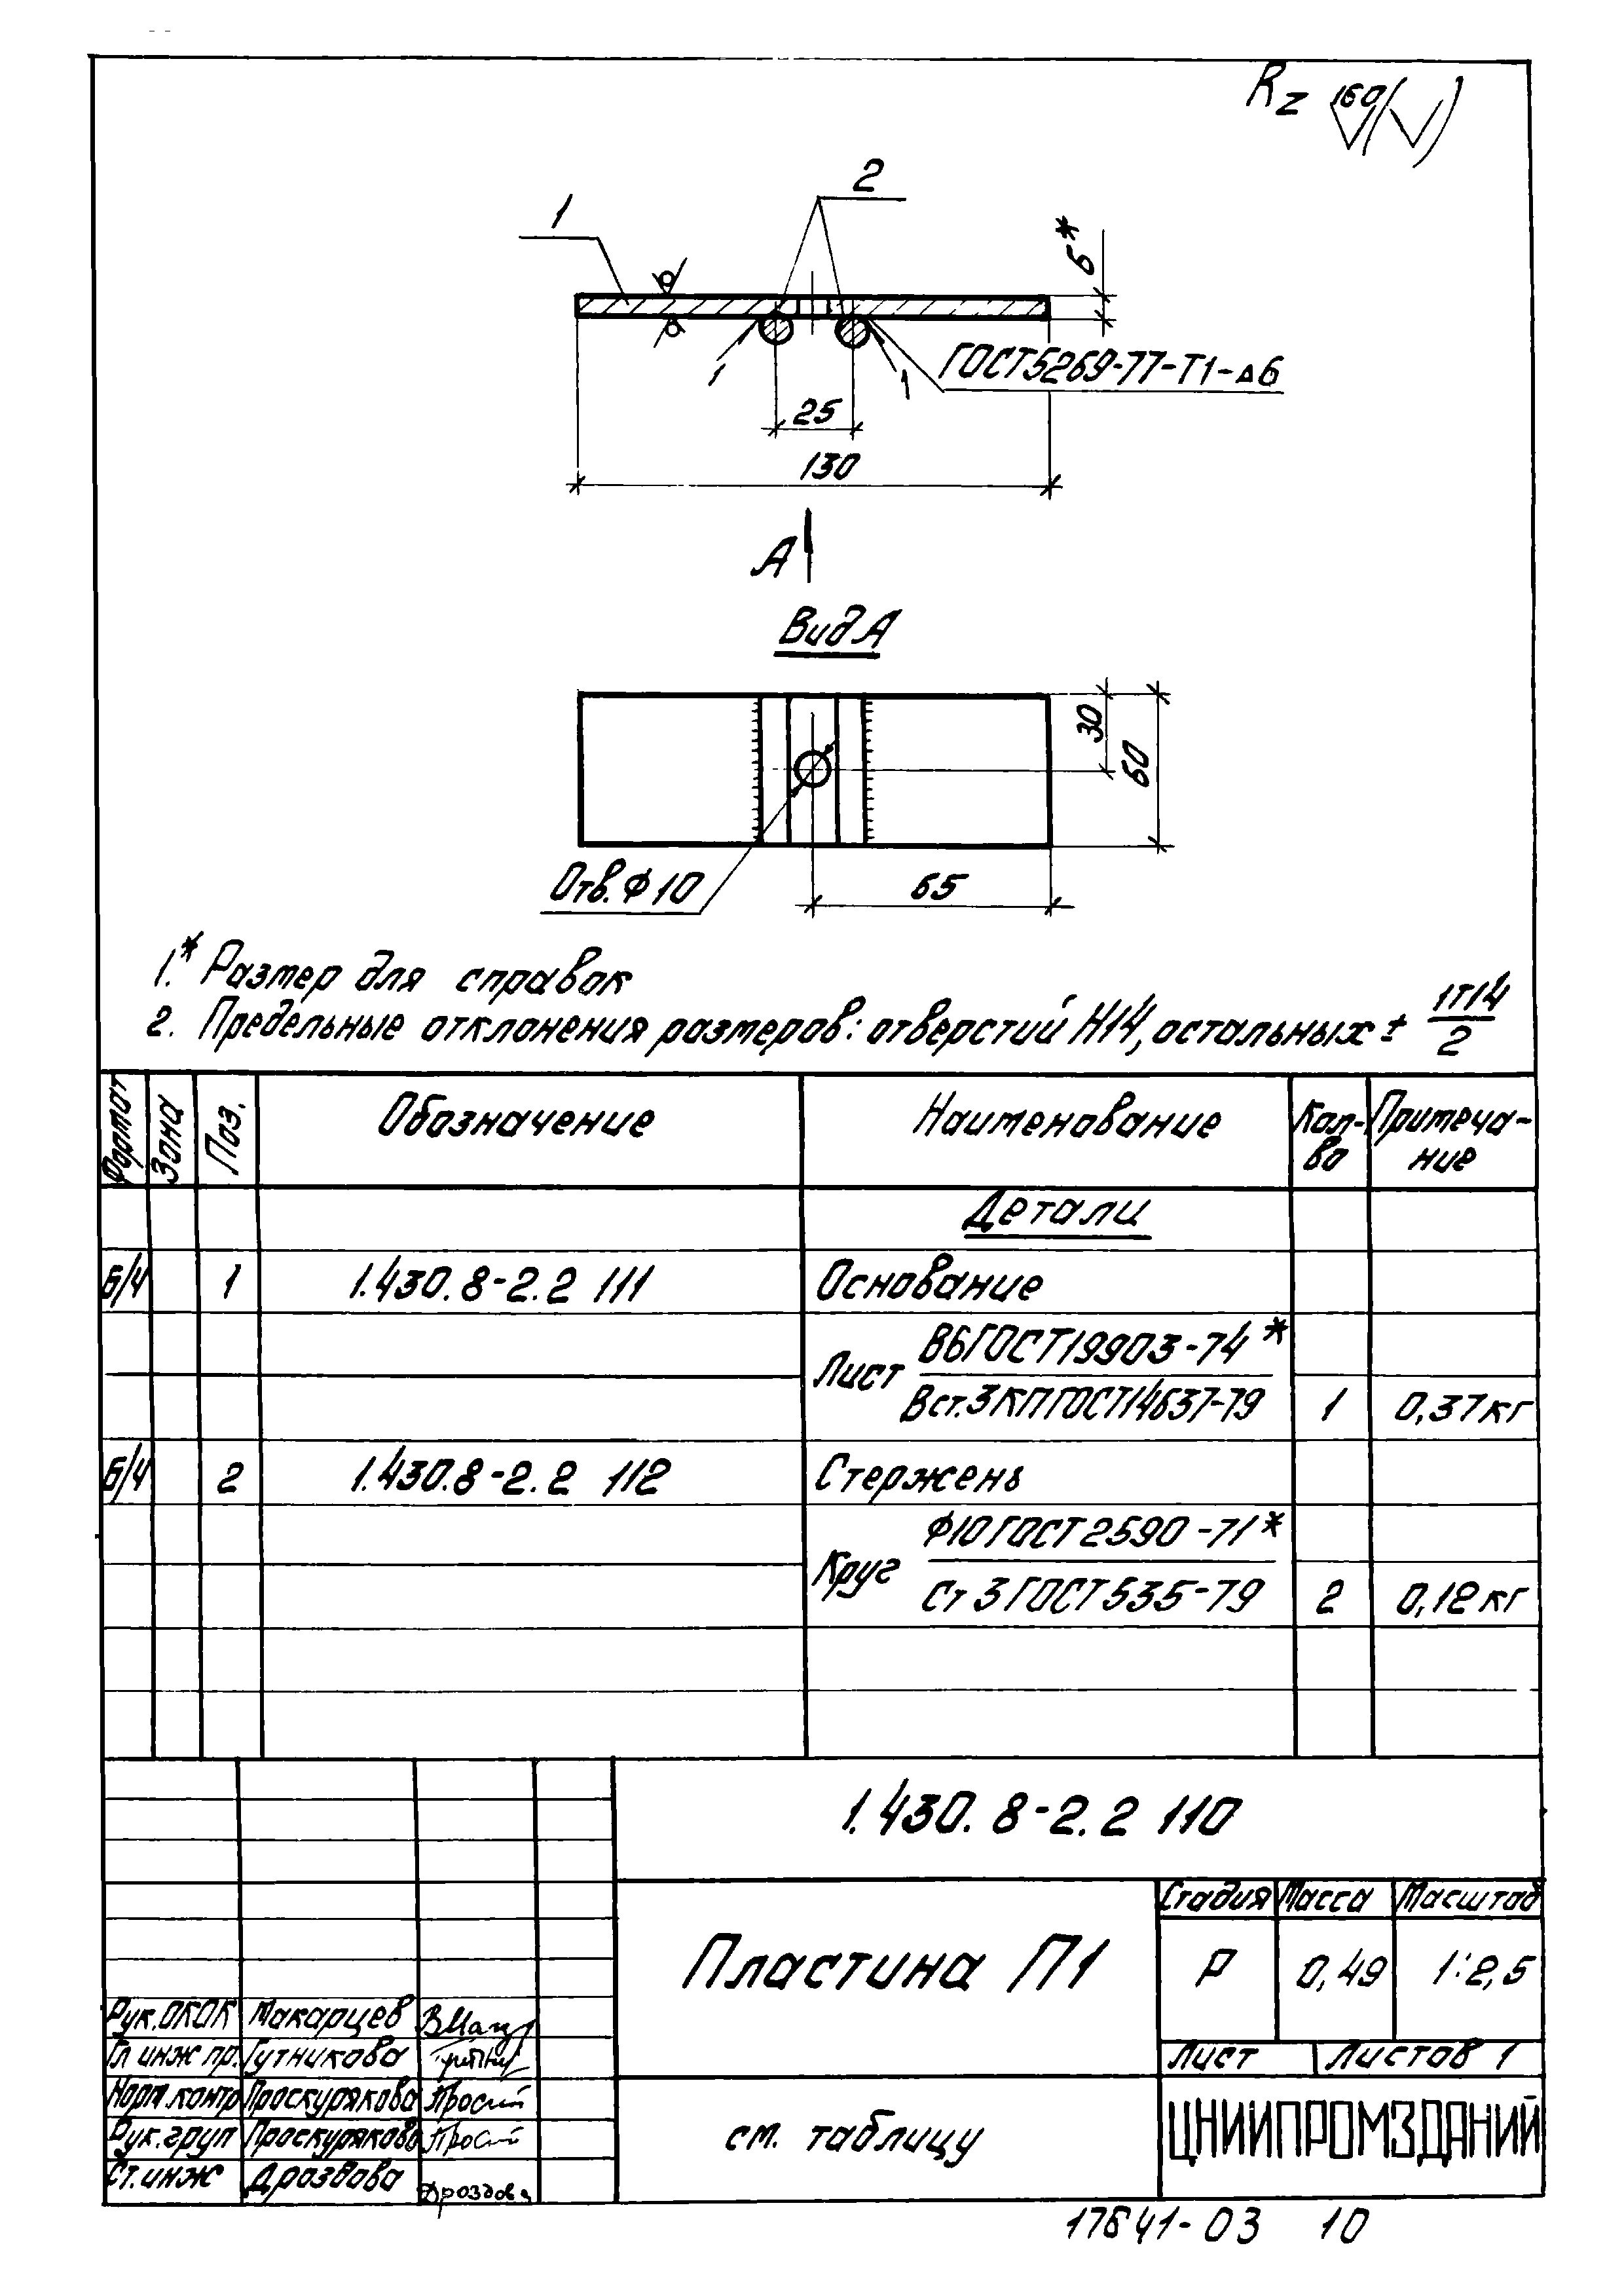 Rz 160
2
1
6*
ГОСТ5269-77-Т1-⊿6
1
1
25
130
А
Вид А
30
60
Отв.Ф10
65
1.* Размер для справок
2. Предельные отклонения размеров: отверстий Н14, остальных ± IT14/2
Формат Зона Поз. Обозначение Наименование Кол-во Примечание
Детали
Б/ч 1 1.430.8-2.2 111 Основание
Лист В6ГОСТ19903-74*
Вст.3КПГОСТ14637-79 1 0,37кг
Б/ч 2 1.430.8-2.2 112 Стержень
Круг Ф10ГОСТ2590-71*
Ст3ГОСТ535-79 2 0,12кг
1.430.8-2.2 110
Пластина П1
Стадия Масса Масштаб
Р 0,49 1:2,5
Лист Листов 1
Рук.ОКОК Макарцев
Гл инж пр. Гутникова
Норм.контр Проскурякова
Рук.груп Проскурякова
Ст.инж Дроздова Дроздова
см. таблицу
ЦНИИПРОМЗДАНИЙ
17641-03 10